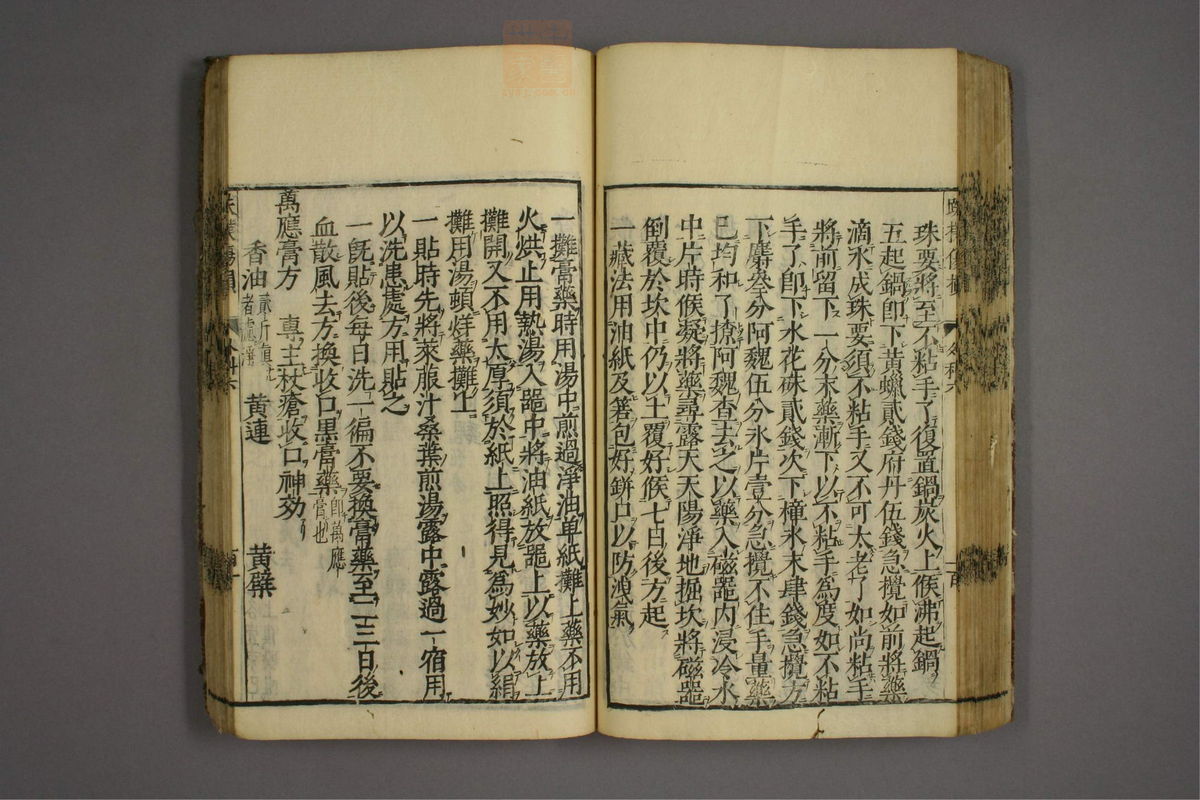 珠要將至不粘手了復置鍋炭火上候沸起鍋
五起鍋即下黃蠟貳錢府丹伍錢急攪如前將藥
滴水成珠要須不粘手又不可太老了如尚粘手
將前留下一分末藥漸下以不粘手為度如不粘
手了即下水花硃貳錢次下樟氷末肆錢急攪方
下麝叄分阿魏伍分氷片壹分急攪不住手量藥
已均和了撩阿魏查去之以藥入磁噐內浸冷水
中片時候凝將藥尋露天天陽淨地掘坎將磁噐
倒覆於坎中仍以土覆好候七日後方起
一藏法用油紙及箬包好缾口以防洩氣
一攤膏藥時用湯中煎過淨油单紙攤上藥不用
火烘止用熱湯入噐中將油紙放噐上以藥放上
攤開又不用太厚須於紙上照得見為妙如以絹
攤用湯頓烊藥攤上
一貼時先將萊菔汁桑葉煎湯露中露過一宿用
以洗患處方用貼之
一旣貼後每日洗一徧不要換膏藥至二三日後
血散風去方換收口黒膏藥即萬應膏也
萬應膏方 專主杖瘡收口神効
香油 黃連 黃檗